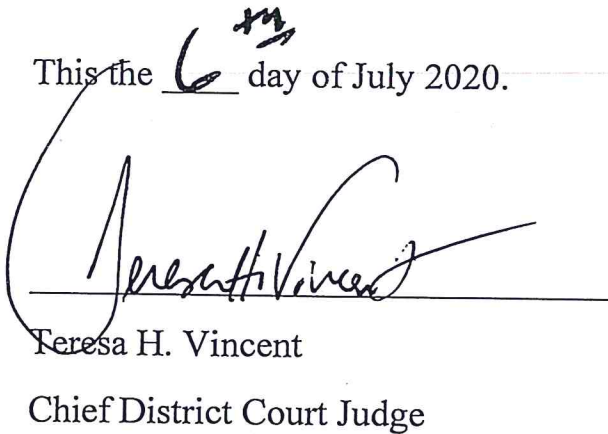 This the 6th day of July 2020.
Teresa H. Vincent
Teresa H. Vincent
Chief District Court Judge